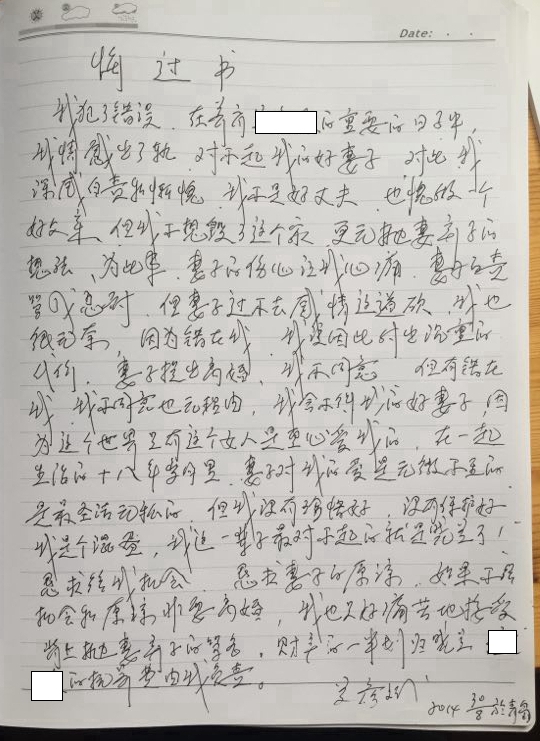 Date:
悔过书
我犯了错误,在养育 的重要的日子中,
我情感出了轨,对不起我的好妻子,对此我
深感自责和惭愧,我不是好丈夫,也愧做一个
好父亲,但我不想毁了这个家,更无抛妻弃子的
想法,为此事,妻子的伤心让我心痛,妻
但妻子过不去感情这道砍,我也
很无奈,因为错在我,我要因此付出沉重的
代价,妻子提出离婚,我不同意,但有错在
我,我不同意也无理由,我舍不得我的好妻子,因
为这个世界只有这个女人是真心爱我的,在一起
生活的十八年岁月里,妻子对我的爱是无微不至的
是最圣洁无私的,但我没有珍惜好,没有保护好
我是个混蛋,我这一辈子最对不起的就是 了!
恳求给我机会,恳求妻子的原谅,如果不给
机会和原谅非要离婚,我也只好痛苦地接受
背上抛妻弃子的罪名,财产的一半划归
的抚养费由我负责。
2014 30/8 于青岛